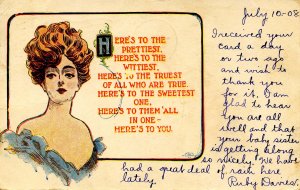 July 10-08
HERE'S TO THE
PRETTIEST,
HERE'S TO THE
WITTIEST,
HERE'S TO THE TRUEST
OF ALL WHO ARE TRUE.
HERE'S TO THE SWEETEST
ONE,
HERE'S TO THEM ALL
IN ONE —
HERE'S TO YOU.
I received your
card a day
or two ago
and wish to
thank you
for it. I am
glad to hear
you are all
well and that
your baby sister
is getting along
so nicely. We have
had a great deal of rain here
lately.
Ruby Davies.